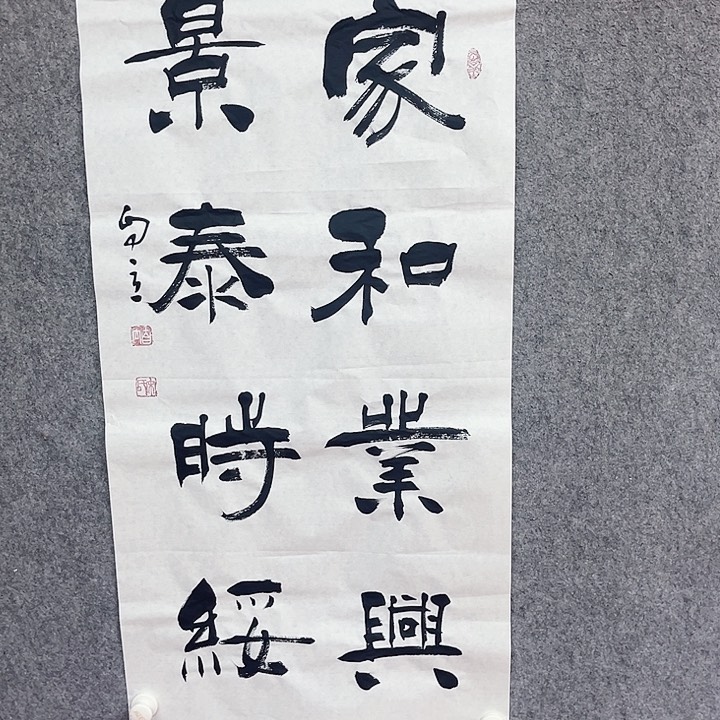 家和業興
景泰時綏